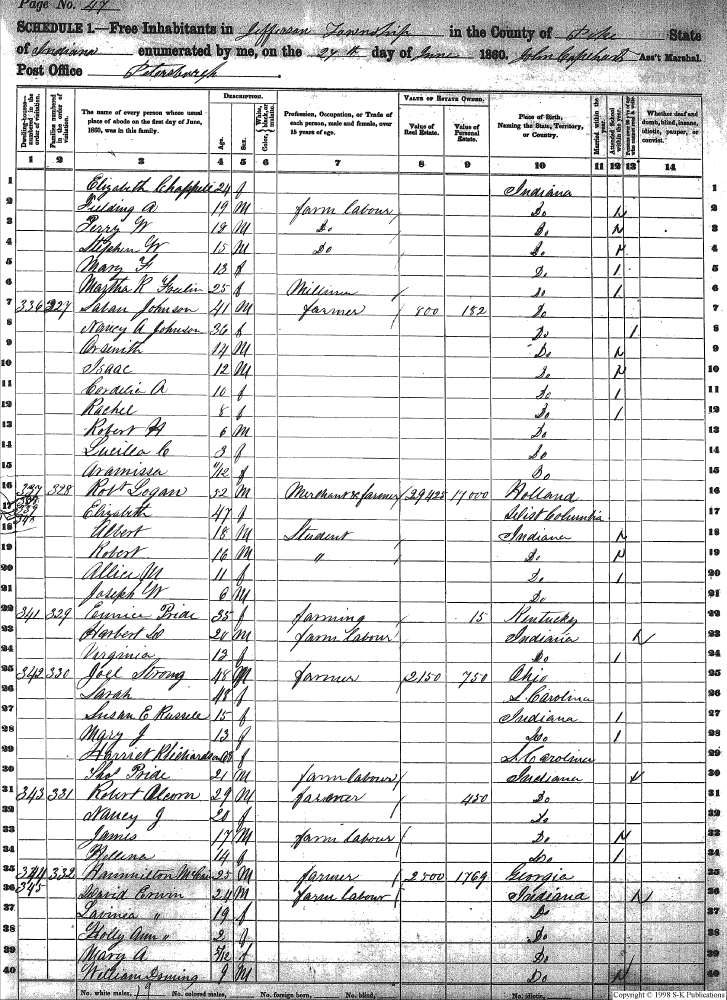 Page No. 47
SCHEDULE 1.—Free Inhabitants in Jefferson Township in the County of Pike State
of Indiana enumerated by me, on the 27th day of June 1860. John Capehart Ass't Marshal.
Post Office Petersburgh
Dwelling-houses—numbered in the order of visitation.
Families numbered in the order of visitation.
The name of every person whose usual place of abode on the first day of June, 1860, was in this family.
DESCRIPTION.
Age.
Sex.
Color, White, black, or mulatto.
Profession, Occupation, or Trade of each person, male and female, over 15 years of age.
VALUE OF ESTATE OWNED.
Value of Real Estate.
Value of Personal Estate.
Place of Birth, Naming the State, Territory, or Country.
Married within the year.
Attended School within the year.
Whether deaf and dumb, blind, insane, idiotic, pauper, or convict.
1 2 3 4 5 6 7 8 9 10 11 12 13 14
1 Elizabeth Chappell 24 f Indiana 1
2 Fielding A 19 M farm labour Do 2
3 Perry W 19 M Do Do 3
4 Stephen W 15 M Do Do 4
5 Mary F 13 f Do 1 5
6 Martha R 25 f Milliner Do 1 6
7 336 327 Johnson 41 M farmer 800 182 Do 7
8 Nancy A Johnson 36 f Do 1 8
9 Orsenith 14 M Do 9
10 Isaac 12 M Do 10
11 Cordelia A 10 f Do 1 11
12 Rachel 8 f Do 1 12
13 Robert H 6 M Do 13
14 Lucilla C 3 f Do 14
15 Aramissa /12 f Do 15
16 337 328 Robt Logan 52 M Merchant & farmer 29425 17000 Holland 16
17 Elizabeth 47 f Dist Columbia 17
18 Albert 18 M Student Indiana 18
19 Robert 16 M " Do 19
20 Allice M 11 f Do 1 20
21 Joseph W 6 M Do 21
22 341 329 Eunice Pride 35 f farming 15 Kentucky 22
23 Harbert 20 M farm labour Indiana 23
24 Virginia 13 f Do 1 24
25 342 330 Joel Strong 48 M farmer 2150 750 Ohio 25
26 Sarah 48 f S. Carolina 26
27 Susan E Russell 15 f Indiana 1 27
28 Mary J 13 f Do 1 28
29 Harriet Richardson f S. Carolina 29
30 Thos Pride 21 M farm labour Indiana 30
31 343 331 Robert Alcorn 29 M farmer 450 Do 31
32 Nancy J 20 f Do 32
33 James 17 M farm labour Do 33
34 Hellena 14 f Do 1 34
35 344 332 Hammilton 25 M farmer 2500 1769 Georgia 35
36 345 David Erwin 24 M farm labour Indiana 36
37 Lavinia " 19 f Do 37
38 Holly Ann " 2 f Do 38
39 Mary A. /12 f Do 39
40 William Doming 9 M Do 40
No. white males, 19 No. colored males, No. foreign born, No. blind, No. idiotic,
Copyright © 1998 S-K Publications